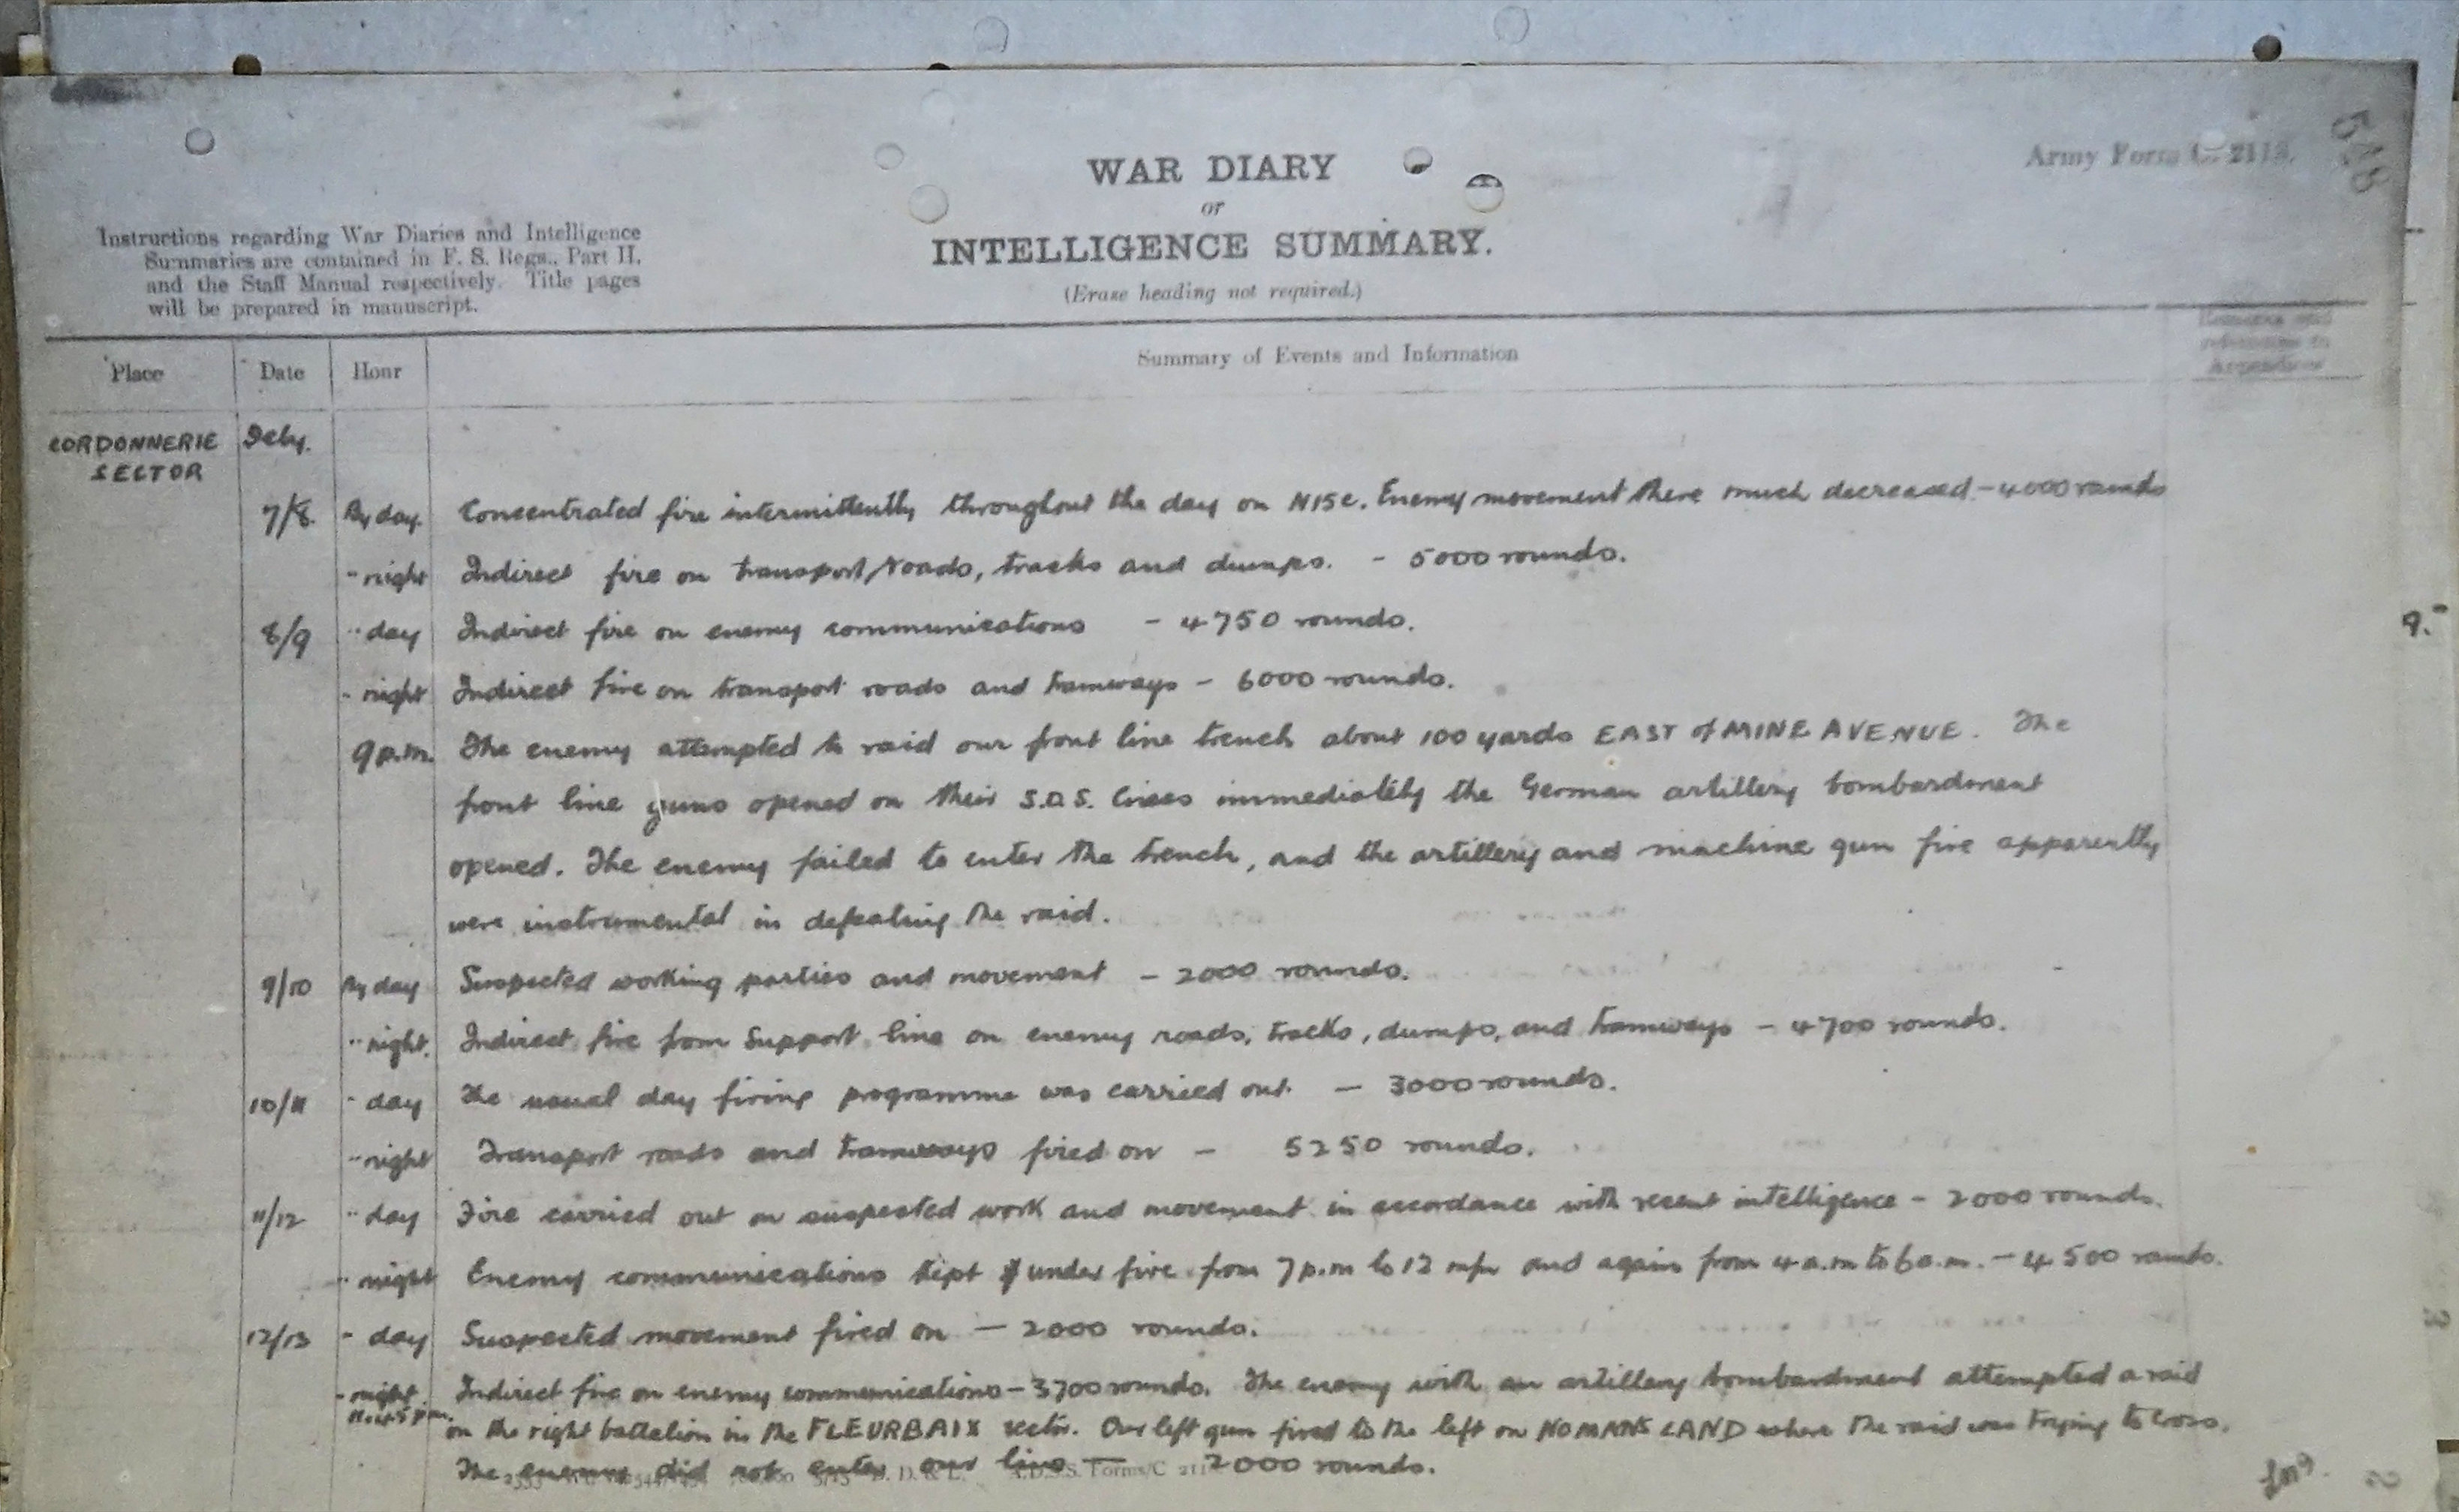 548
Army Form C. 2118.
WAR DIARY
or
INTELLIGENCE SUMMARY.
(Erase heading not required.)
Instructions regarding War Diaries and Intelligence
Summaries are contained in F. S. Regs., Part II,
and the Staff Manual respectively. Title pages
will be prepared in manuscript.
Place Date Hour Summary of Events and Information Remarks and
references to
Appendices
CORDONNERIE Feby.
SECTOR
7/8. By day. Concentrated fire intermittently throughout the day on N15c. Enemy movement there much decreased. - 4000 rounds
" night Indirect fire on transport, roads, tracks and dumps. - 5000 rounds.
8/9 " day Indirect fire on enemy communications - 4750 rounds.
" night Indirect fire on transport roads and tramways - 6000 rounds.
9 p.m. The enemy attempted to raid our front line trench about 100 yards EAST of MINE AVENUE. The
front line guns opened on their S.O.S. lines immediately the German artillery bombardment
opened. The enemy failed to enter the trench, and the artillery and machine gun fire apparently
were instrumental in defeating the raid.
9/10 By day Suspected working parties and movement - 2000 rounds.
" night. Indirect fire from Support line on enemy roads, tracks, dumps, and tramways - 4700 rounds.
10/11 " day The usual day firing programme was carried out - 3000 rounds.
" night Transport roads and tramways fired on - 5250 rounds.
11/12 " day Fire carried out on suspected work and movement in accordance with recent intelligence - 2000 rounds.
" night Enemy communications kept under fire from 7 p.m to 12 and again from 4 a.m to 6 a.m. - 4500 rounds.
12/13 " day Suspected movement fired on - 2000 rounds.
" night Indirect fire on enemy communications - 3700 rounds. The enemy with an artillery bombardment attempted a raid
11.45 p.m. on the right battalion in the FLEURBAIX sector. Our left gun fired to the left on NOMANS LAND where the raid was trying to cross.
The enemy did not enter our line - 2000 rounds.
9.